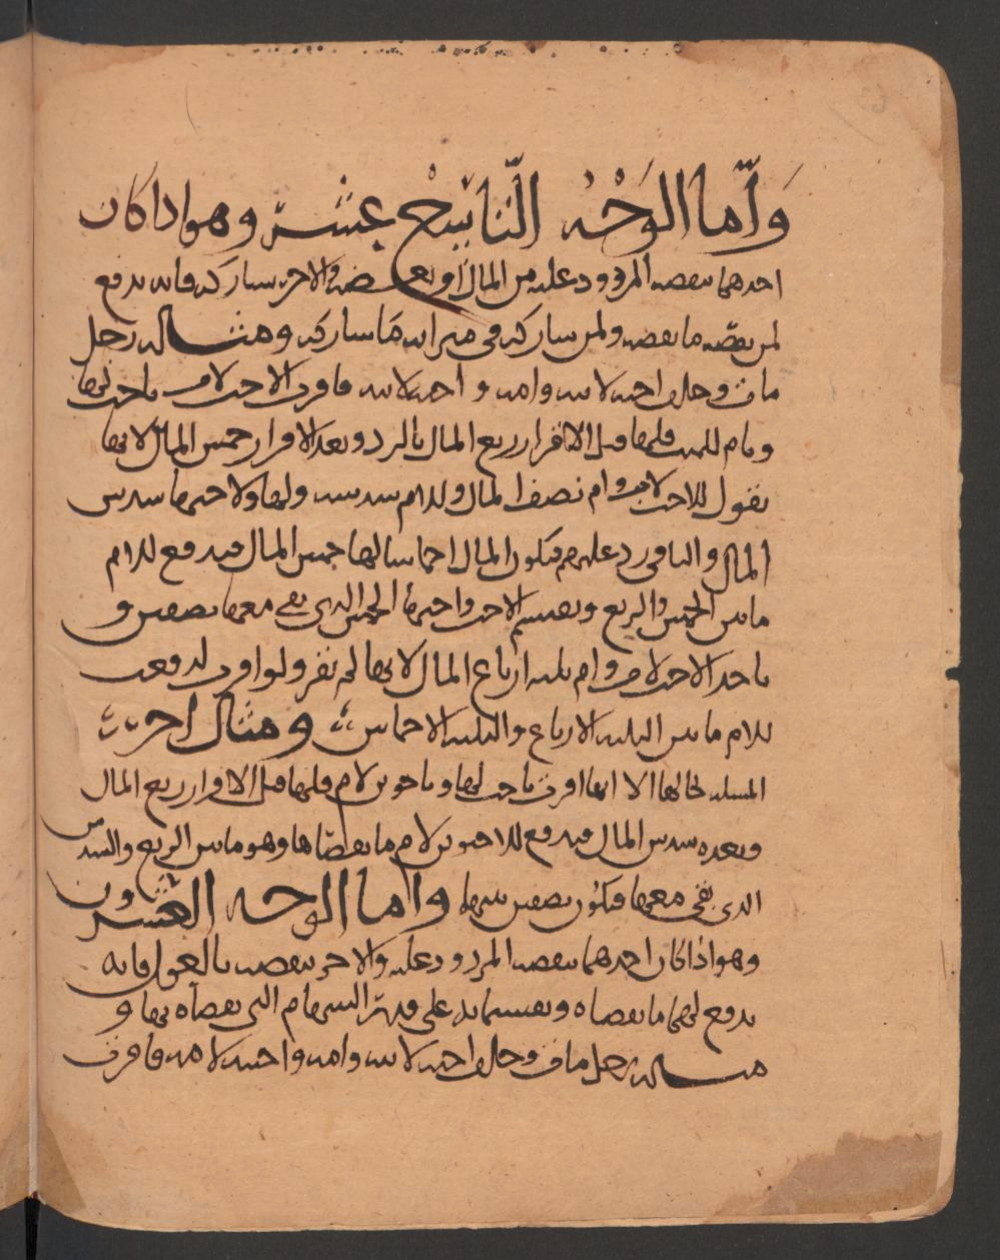 وَأمّا الوَجْه التّاسِع عشر وهو اذا كان
احدهما ينقصه المردود عليه من المال او بعضه والاخر يشاركه فانه يدفع
لمن نقصه ما نقصه ولمن شاركه فى ميراثه ما شاركه ومثاله رجل
مات وخلف اخته لابيه وامه واخته لابيه فاقرت الاخت لاب باخت لها
وبام للميت فلها قبل الاقرار ربع المال بالرد وبعد الاقرار خمس المال لانها
تقول للاخت لاب وام نصف المال وللام سدسه ولها ولاختها سدس
المال والباقى رد عليهم فيكون المال اخماسا لها خمس المال فيدفع للام
ما بين الخمس والربع وتقسم الاخت واختها الخمس الذى بقى معها نصفين و
تاخذ الاخت لاب وام ثلثه ارباع المال لانها لم تقر ولو اقرت لدفعت
للام ما بين الثلثه الارباع والثلثه الاخماس ومثال اخر
المسله بحالها الا انها اقرت باخت لها وباخوين لام فلها قبل الاقرار ربع المال
وبعده سدس المال فيدفع للاخوين لام ما نقصاها وهو ما بين الربع والسدس
الذى بقى معها فيكون نصفين بينهما واما الوجه العشرون
وهو اذا كان احدهما ينقصه المردود عليه والاخر ينقصه بالعول فانه
يدفع لهما ما نقصاه ويقتسمانه على قدر السهام التى نقصاه بها و
مثاله رجل مات وخلف اخته لابيه وامه واخته لامه فاقرت